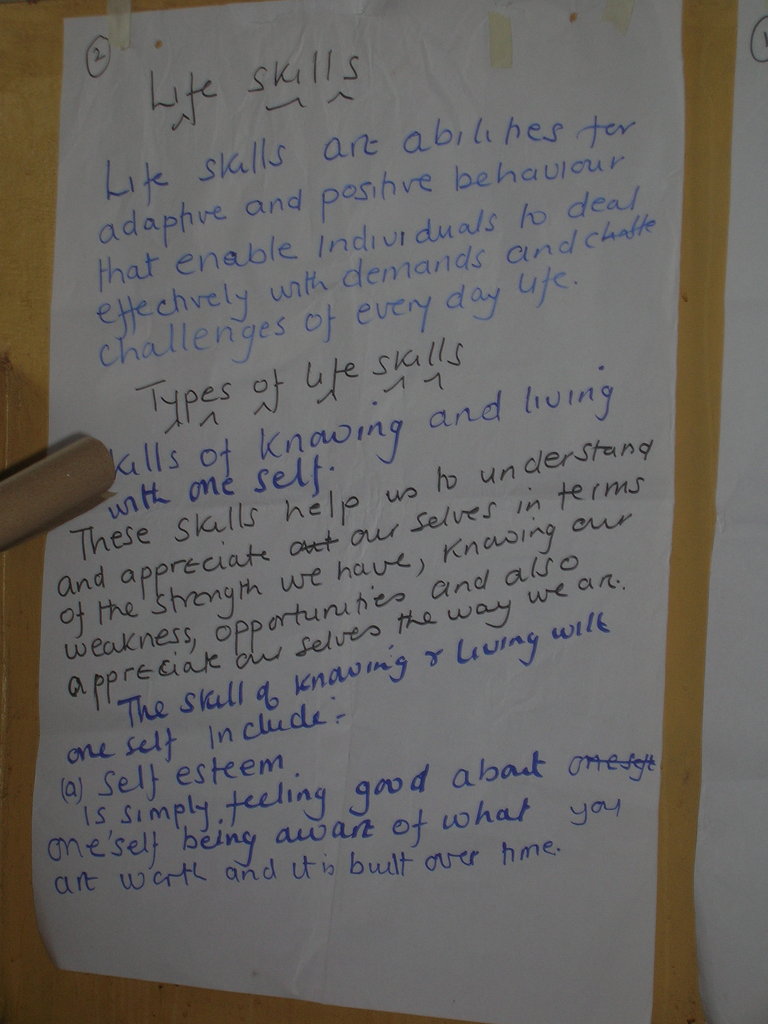 2
Life skills
Life skills are abilities for
adaptive and positive behaviour
that enable individuals to deal
effectively with demands and challe
challenges of every day life.
Types of life skills
kills of knowing and living
with one self.
These skills help us to understand
and appreciate out our selves in terms
of the strength we have, knowing our
weakness, opportunities and also
appreciate our selves the way we are.
The skill of knowing & living with
one self include:-
(a) Self esteem.
Is simply feeling good about oneself
one'self being aware of what you
are worth and it is built over time.